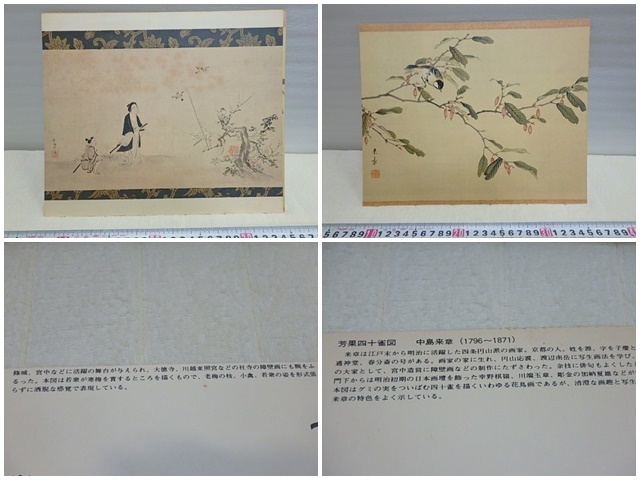 5678910 1 2 3 4 5 6 7 8 9 20 1 2 3 4 5 6 7 8 9 30 1 2 3 4 5 6
来章
條城、宮中などに活躍の舞台が与えられ、大徳寺、川越東照宮などの社寺の障壁画にも腕をふ
るった。本図は若衆が寒梅を賞するところを描くもので、老梅の枝、小禽、若衆の姿を形式張
らずに洒脱な感覚で表現している。
芳果四十雀図　中島来章（1796〜1871）
来章は江戸末から明治に活躍した四条円山派の画家。京都の人。姓を源、字を子慶と
通神堂、春分斎の号がある。画家の家に生れ、円山応震、渡辺南岳に写生画法を学び、
の大家として、宮中造営に障壁画などの制作にたずさわった。余技に俳句もよくした
門下からは明治初期の日本画壇を飾った幸野楳嶺、川端玉章、彫金の加納夏雄などが
本図はグミの実をついばむ四十雀を描くいわゆる花鳥画であるが、清澄な画趣と写生
来章の特色をよく示している。